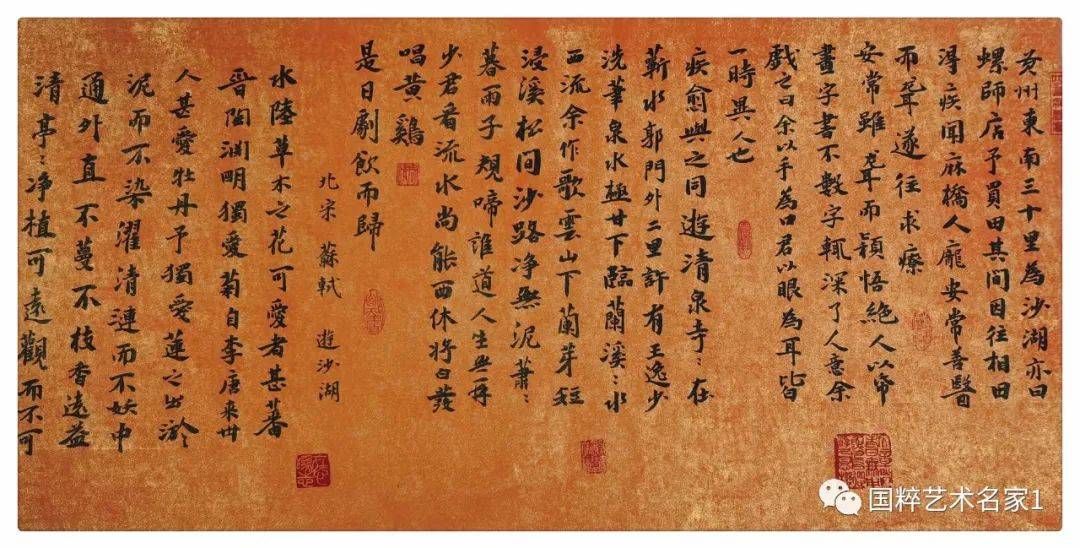 黄州東南三十里為沙湖亦曰
螺師店予買田其間因往相田
得疾聞麻橋人龐安常善醫
而聾遂往求療
安常雖聾而穎悟絶人以帋
畫字書不數字輒深了人意余
戲之曰余以手為口君以眼為耳皆
一時異人也
疾愈與之同遊清泉寺〻在
蘄水郭門外二里許有王逸少
洗筆泉水極甘下臨蘭溪〻水
西流余作歌雲山下蘭芽短
浸溪松間沙路净無泥蕭〻
暮雨子規啼誰道人生無再
少君看流水尚能西休將白髮
唱黄鷄
是日劇飲而歸
北宋 蘇軾 遊沙湖
水陸草木之花可愛者甚蕃
晋陶渊明獨愛菊自李唐来世
人甚愛牡丹予獨愛蓮之出淤
泥而不染濯清漣而不妖中
通外直不蔓不枝香遠益
清亭〻净植可遠觀而不可
国粹艺术名家1